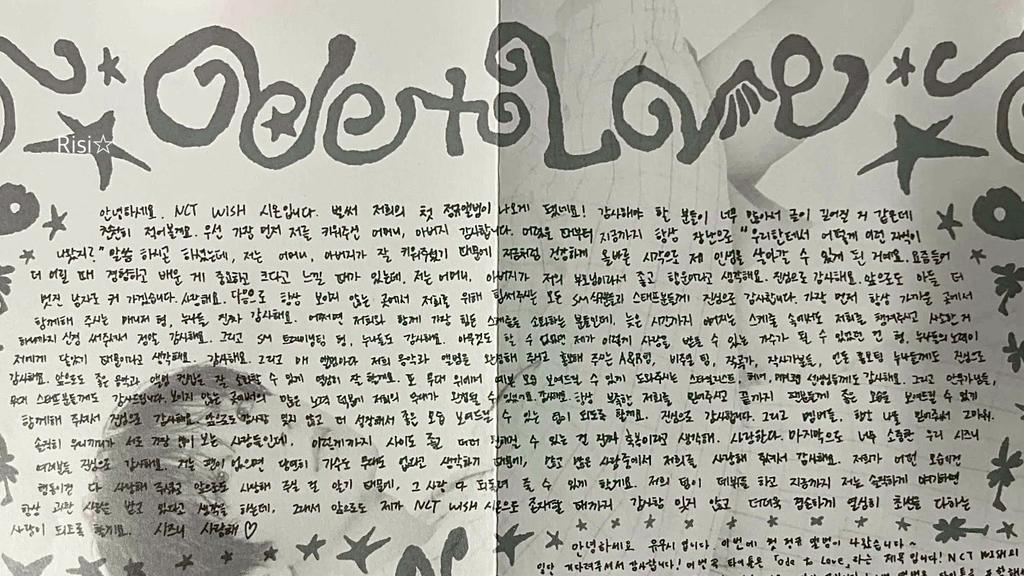 Ode to Love
Risi☆
안녕하세요. NCT WISH 시온입니다. 벌써 저희의 첫 정규앨범이 나오게 됐네요! 감사해야 할 분들이 너무 많아서 글이 길어질 거 같은데
적어볼게요. 우선 가장 먼저 저를 키워주신 어머니, 아버지 감사합니다. 지금까지 항상 장난으로 "우리한테서 어떻게 이런 자식이
나왔지?" 말씀 하시고 하셨는데, 저는 어머니, 아버지가 잘 키워주셨기 때문에 지금처럼 건강하게 올바른 시각으로 제 인생을 살아갈 수 있게 된 거예요. 요즘들어
더 어릴 때 경험하고 배운 게 중요하고 크다고 느낄 때가 있는데, 저는 어머니, 아버지가 저의 부모님이라서 좋고 행운이라고 생각해요. 진심으로 감사해요. 앞으로도 아들 더
멋진 남자로 커 가겠습니다. 사랑해요. 다음으로 항상 보이지 않는 곳에서 저희를 위해 힘써주시는 모든 SM 식구들과 스태프분들께 진심으로 감사합니다. 가장 먼저 항상 가까운 곳에서
함께해 주시는 매니저 형, 누나들 진짜 감사해요. 어쩌면 저희와 함께 가장 힘든 스케줄을 소화하는 분들인데, 늦은 시간까지 이어지는 스케줄 속에서도 저희를 챙겨주시고 사소한 거
하나까지 신경 써주셔서 정말 감사해요. 그리고 SM 형, 누나들도 감사해요. 제가 이렇게 사랑을 받을 수 있는 가수가 될 수 있었던 건 형, 누나들의 노력이
저에게 닿았기 때문이라고 생각해요. 감사해요. 그리고 매 앨범마다 저희 음악과 앨범을 완성해 주시고 주시는 A&R팀, 비주얼 팀, 작곡가, 작사가분들, 홍보팀 누나들께도 진심으로
감사해요. 앞으로도 좋은 음악과 앨범 컨셉을 잘 소화할 수 있게 열심히 잘 할게요. 또 무대 위에서 예쁜 모습 보여드릴 수 있게 도와주시는 스타일리스트, 헤어, 메이크업 선생님들께도 감사해요. 그리고 안무가님들,
무대 스태프분들께도 감사드립니다. 보이지 않는 곳에서의 많은 노력 덕분에 저희의 무대가 완성될 수 있었어요. 항상 부족한 저희를 믿어주시고 좋은 모습을 보여드릴 수 있게
함께해 주셔서 진심으로 감사해요. 앞으로도 감사함 잊지 않고 더 성장해서 좋은 모습 보여드릴 수 있는 팀이 되도록 할게요. 진심으로 감사합니다. 그리고 멤버들, 항상 나를 믿어줘서 고마워.
솔직히 우리끼리가 서로 가장 많이 보는 사람들인데, 이렇게까지 사이도 좋고 수 있는 건 진짜 축복이라고 생각해. 사랑한다. 마지막으로 너무 소중한 우리 시즈니
여러분들 진심으로 감사해요. 저는 팬이 없으면 당연히 가수도 무대도 없다고 생각하기 때문에, 많고 많은 사람중에서 저희를 사랑해 줘서 감사해요. 저희가 어떤 모습이건
행동이건 다 사랑해 주시고 앞으로도 사랑해 주실 걸 알기 때문에, 그 사랑 다 되돌려 줄 수 있게 할게요. 저의 팀이 데뷔를 하고 지금까지 저는 솔직하게 얘기하면
항상 과분한 사랑을 받고 있다고 생각을 하는데, 그래서 앞으로도 제가 NCT WISH 시온으로 존재할 때까지 감사함 잊지 않고 더더욱 겸손하게 열심히 최선을 다하는
사람이 되도록 할게요. 시즈니 사랑해♡
안녕하세요 유우시 입니다. 이번에 첫 정규 앨범이 나왔습니다~
일단 기다려주셔서 감사합니다! 이번 곡 타이틀은 「Ode to Love」라는 제목 입니다! NCT WISH의